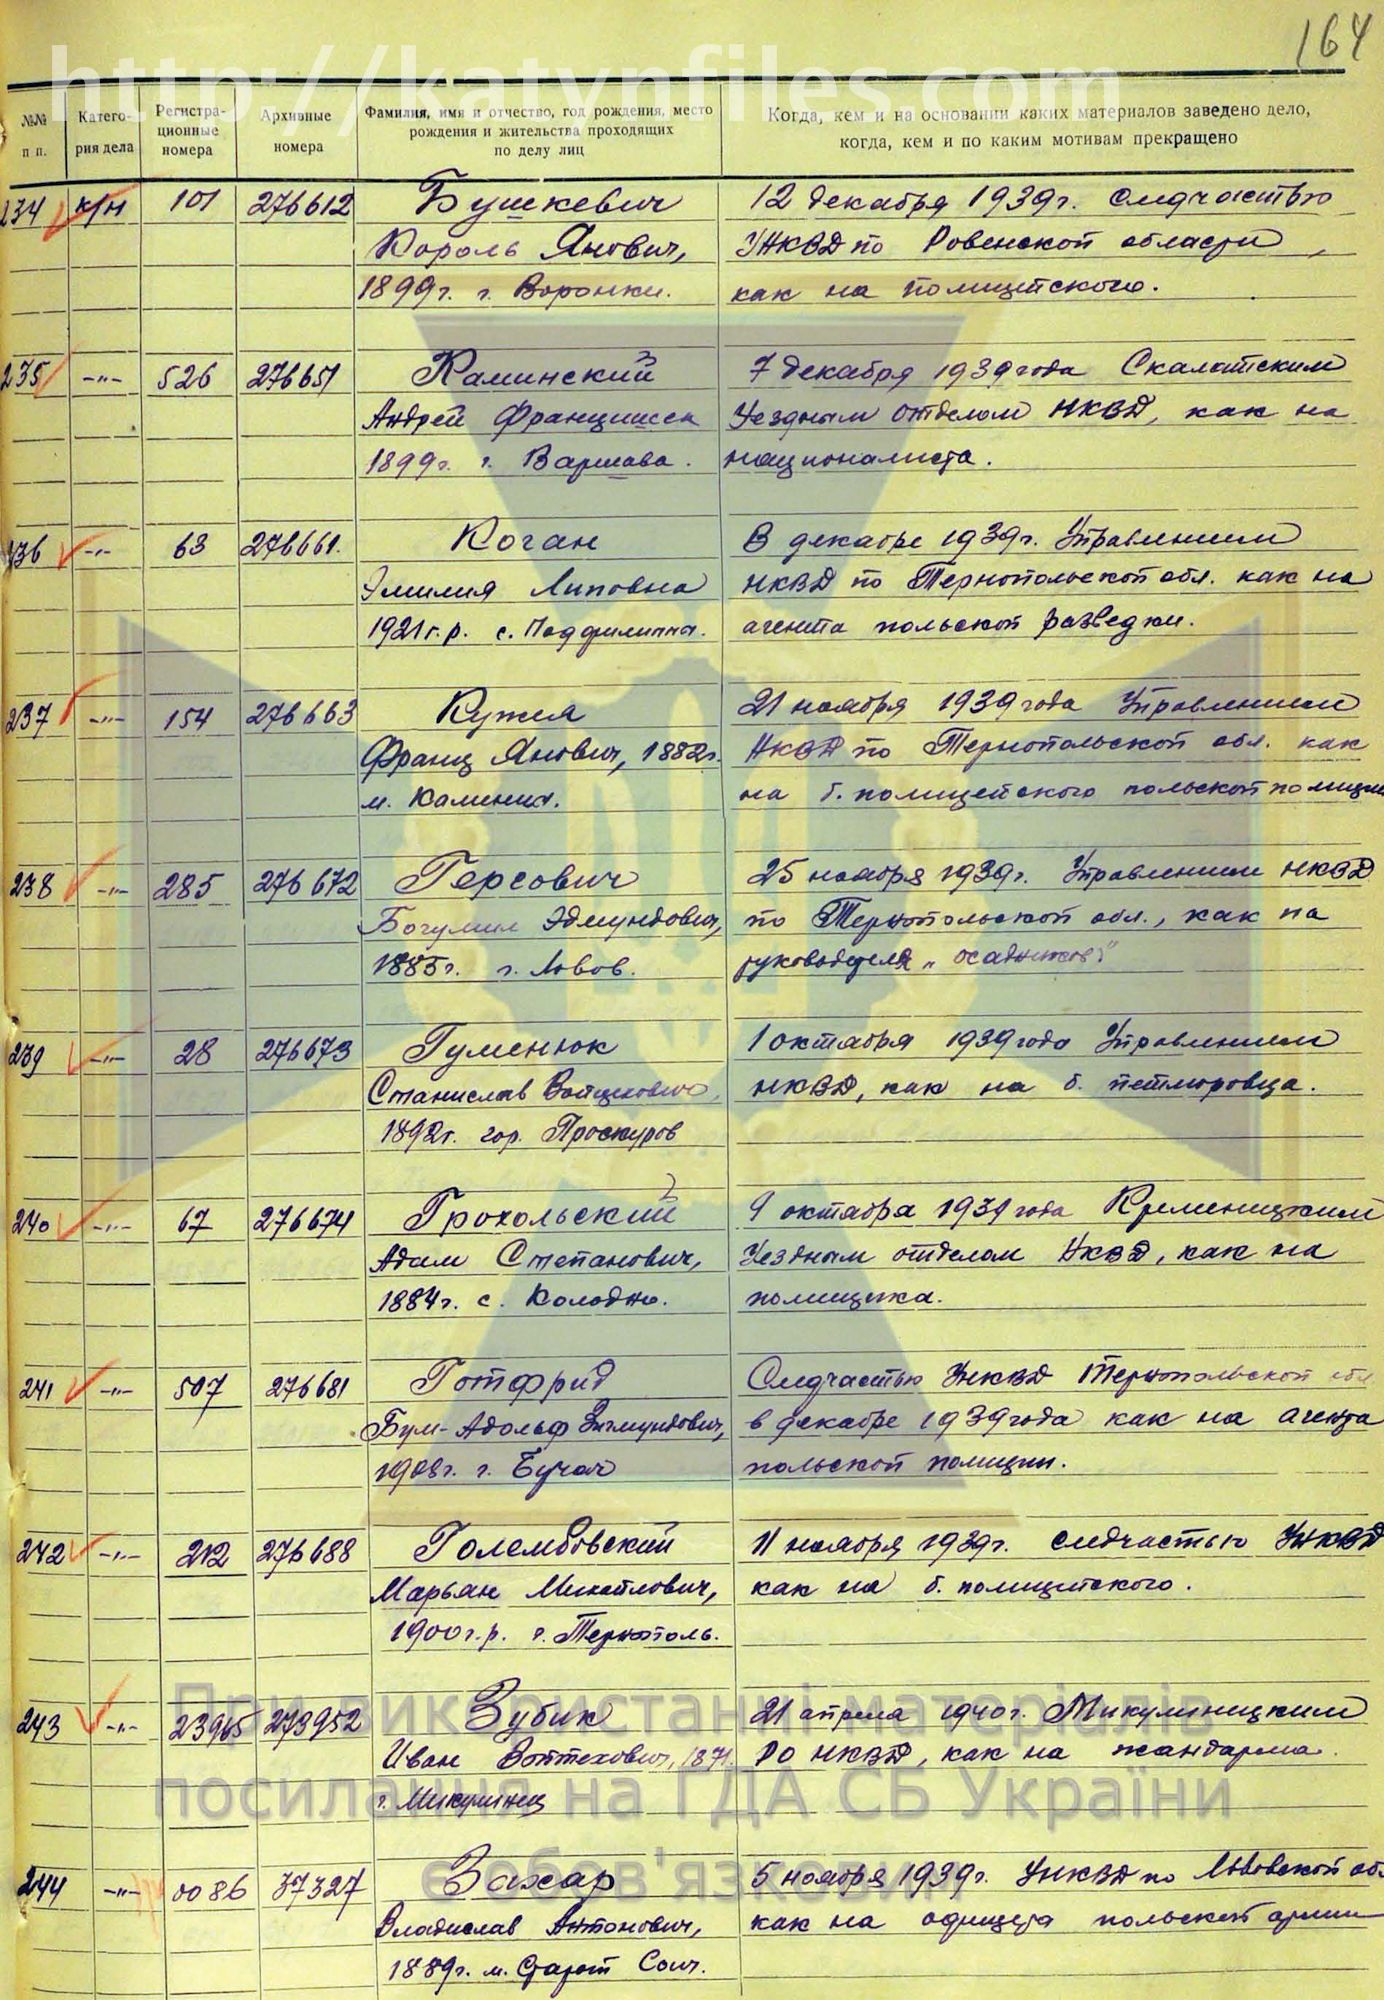 164
http://katynfiles.com
№№
п п.
Катего-
рия дела
Регистра-
ционные
номера
Архивные
номера
Фамилия, имя и отчество, год рождения, место
рождения и жительства проходящих
по делу лиц
Когда, кем и на основании каких материалов заведено дело,
когда, кем и по каким мотивам прекращено
234 к/н 101 276612 Бушкевич 12 декабря 1939г. следчастью
Кароль Янович, УНКВД по Ровенской области,
1899г. г. Воронки. как на полицейского.
235 -"- 526 276651 Каминский 7 декабря 1939 года Скалатским
Андрей Францишек Уездным отделом НКВД, как на
1899г. г. Варшава. националиста.
236 -"- 63 276661. Коган В декабре 1939г. Управлением
Эмилия Липовна НКВД по Тернопольской обл. как на
1921г.р. с. Подфилипы. агента польской разведки.
237 -"- 154 276663 Кужея 21 ноября 1939 года Управлением
Франц Янович, 1882г. НКВД по Тернопольской обл. как
м. на б. полицейского польской полиции
238 -"- 285 276672 Герсович 25 ноября 1939г. Управлением НКВД
Богумил Эдмундович, по Тернопольской обл., как на
1885г. г. Львов. руководителя „осадников"
239 -"- 28 276673 Гуменюк 1 октября 1939 года Управлением
Станислав Войцехович, НКВД, как на б. петлюровца.
1892г. гор. Проскуров
240 -"- 67 276674 Грохольский 9 октября 1939 года Кременецким
Адам Степанович, Уездным отделом НКВД, как на
1884г. с. Колодно. помещика.
241 -"- 507 276681 Готфрид Следчастью УНКВД Тернопольской обл.
Бум-Адольф Зигмундович, в декабре 1939 года как на агента
1908г. г. Бучач польской полиции.
242 -"- 212 276688 Голембовский 11 ноября 1939г. следчастью УНКВД
Марьян Михайлович, как на б. полицейского.
1900г.р. г. Тернополь.
243 -"- 23965 273952 Зубик 21 апреля 1940г. Микулинецким
Иван Войтехович, 1871. РО НКВД, как на жандарма.
г. Микулинец
244 -"- 0086 37327 Захар 5 ноября 1939г. УНКВД по Львовской об.
Владислав Антонович, как на офицера польской армии
1889г. м. Старый Сонч.
При використанні матеріалів
посилання на ГДА СБ України
є обов'язковим